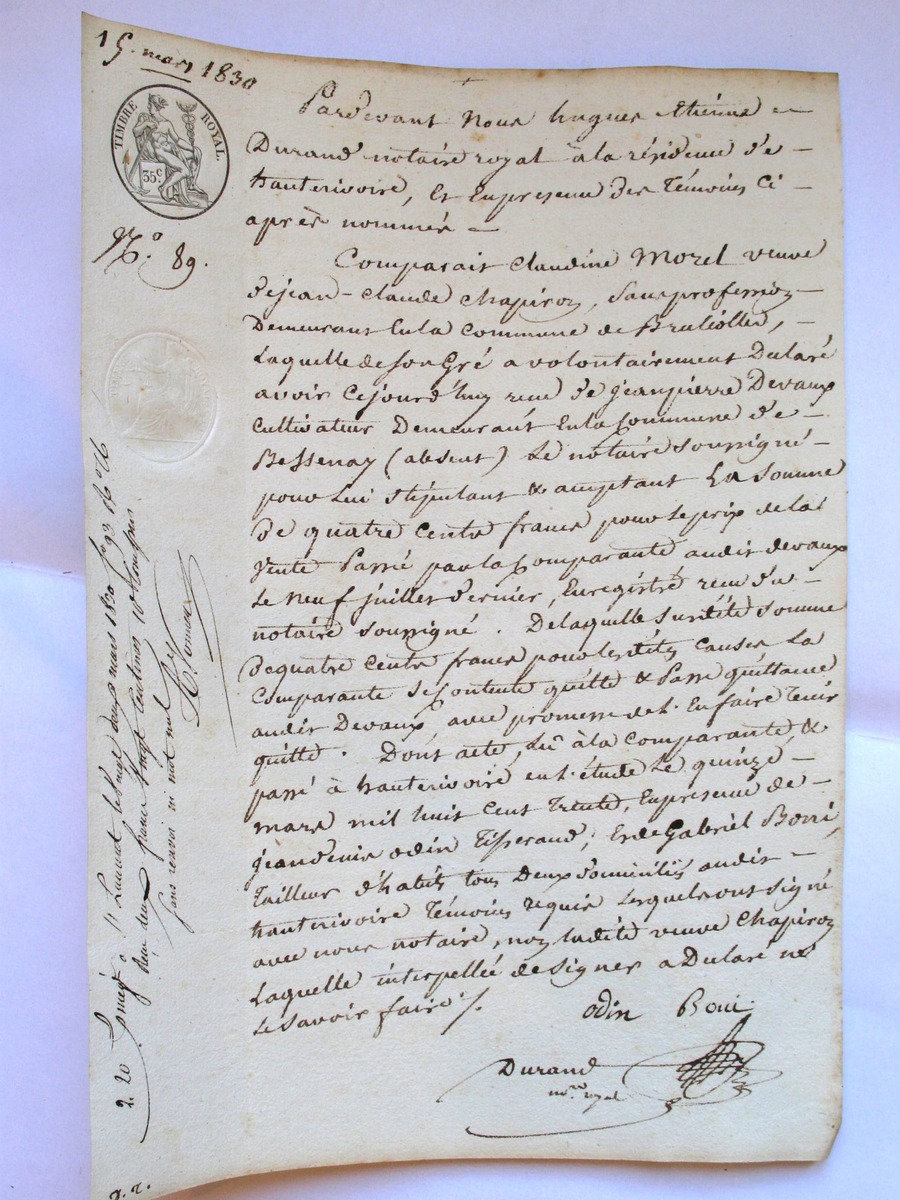 15. mars 1830
TIMBRE ROYAL.
35 c.
N.o 89.
Pardevant Nous hugues Etienne
Durand notaire royal à la résidence de
hauterivoire, Et En presence des Témoins Ci
après nommés
Comparait Claudine Morel veuve
de jean-Claude Chapiron, Sans profession
Demeurant En la Commune de Brullolles,
Laquelle de Son Gré a volontairement Déclaré
avoir Cejourd'huy reçu de jeanpierre Devaux
Cultivateur Demeurant En la Commune de
Bessenay (absent) Le notaire Soussigné
pour Lui Stipulant & acceptant La Somme
De quatre Cents francs pour Le prix de la
Vente Passée par la Comparante audit devaux
Le Neuf juillet Dernier, Enregistré reçu du
notaire Soussigné. De laquelle Susdite Somme
De quatre Cents francs pour lesdites Causes La
Comparante Se Contente quitte & Passe quittance
audit Devaux avec promesse de L'En faire Tenir
quitte. Dont acte, Lu à la Comparante &
passé à hauterivoire en L'étude Le quinze
mars mil huit Cent Trente, En presence de
jeandenis odin Tisserand, Et de Gabriel Boni,
Tailleur d'habits tous Deux Domiciliés audit
hauterivoire Témoins requis Lesquels ont Signé
avec nous notaire, non ladite veuve Chapiron
Laquelle interpellée de Signer a Déclaré ne
Le Savoir faire ./.
odin Boni
Durand
no.re royal
St Laurent le vingt deux mars 1830 fo 93
Reçu deux francs vingt centimes 10e compris
sans renvoi ni mot nul
2. 20
2. 2.